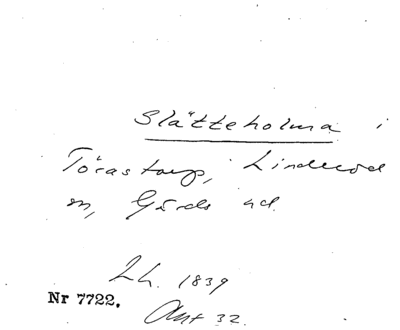 Slätteholma i
Törastorp, Linderöd
sn, Gärds hd.
Lh. 1839
Nr 7722.
Akt 32.